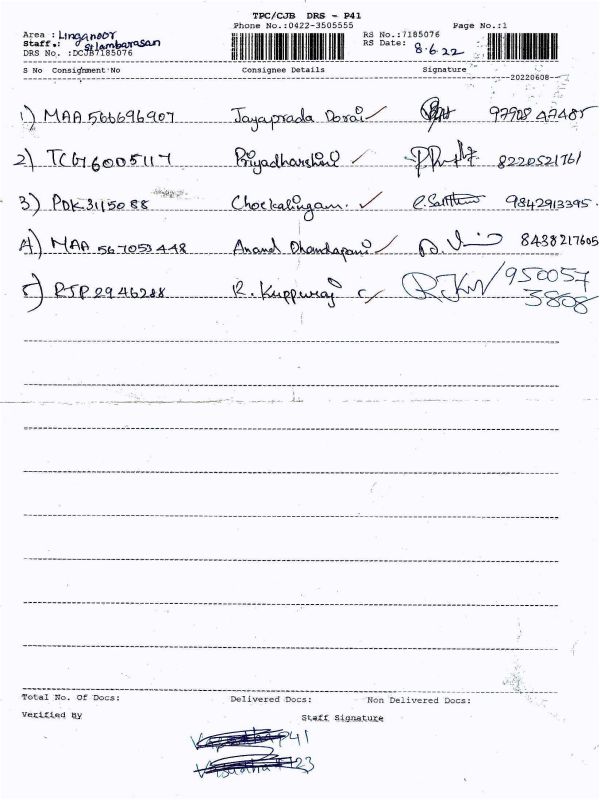 TPC/CJB DRS - P41
Phone No.:0422-3505555 Page No.:1
Area : Linganoor
Staff.: Silambarasan
DRS No. :DCJB7185076
RS No.:7185076
RS Date: 8.6.22
S No Consignment No Consignee Details Signature
20220608
1) MAA 566696907 Jayaprada Dorai 97908 47485
2) TCG76005117 Priyadharshini 8220521761
3) PDK 3115088 Chockalingam. 9842913395.
4) MAA 567053448 Anand Dhandapani 8438217605
5) RJP 2946288 R. Kuppuraj 950057
3808
Total No. Of Docs: Delivered Docs: Non Delivered Docs:
Verified By Staff Signature